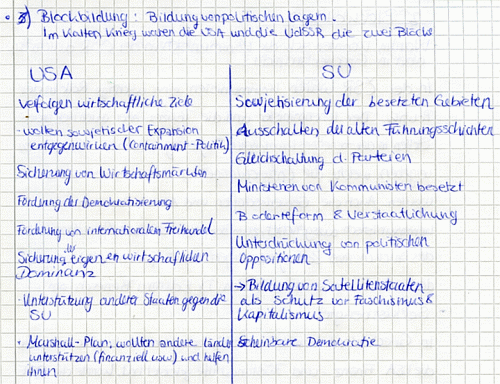 3) Blockbildung: Bildung von politischen Lagern.
Im Kalten Krieg waren die USA und die UdSSR die zwei Blöcke
USA
Verfolgen wirtschaftliche Ziele
- wollen sowjetischer Expansion
entgegenwirken (Containment-Politik)
Sicherung von Wirtschaftsmärkten
Förderung der Demokratisierung
Förderung von internationalem Freihandel
Sicherung der eigenen wirtschaflichen
Dominanz
- Unterstützung anderer Staaten gegen die
SU
• Marshall-Plan: wollten andere Länder
unterstützen (finanziell usw) und helfen
ihnen
SU
Sowjetisierung der besetzten Gebieten
Ausschalten der alten Führungsschichten
Gleichschaltung d. Parteien
Ministerien von Kommunisten besetzt
Bodenreform & Verstaatlichung
Unterdrückung von politischen
Oppositionen
→ Bildung von Satellitenstaaten
als Schutz vor Faschismus &
Kapitalismus
Scheinbare Demokratie